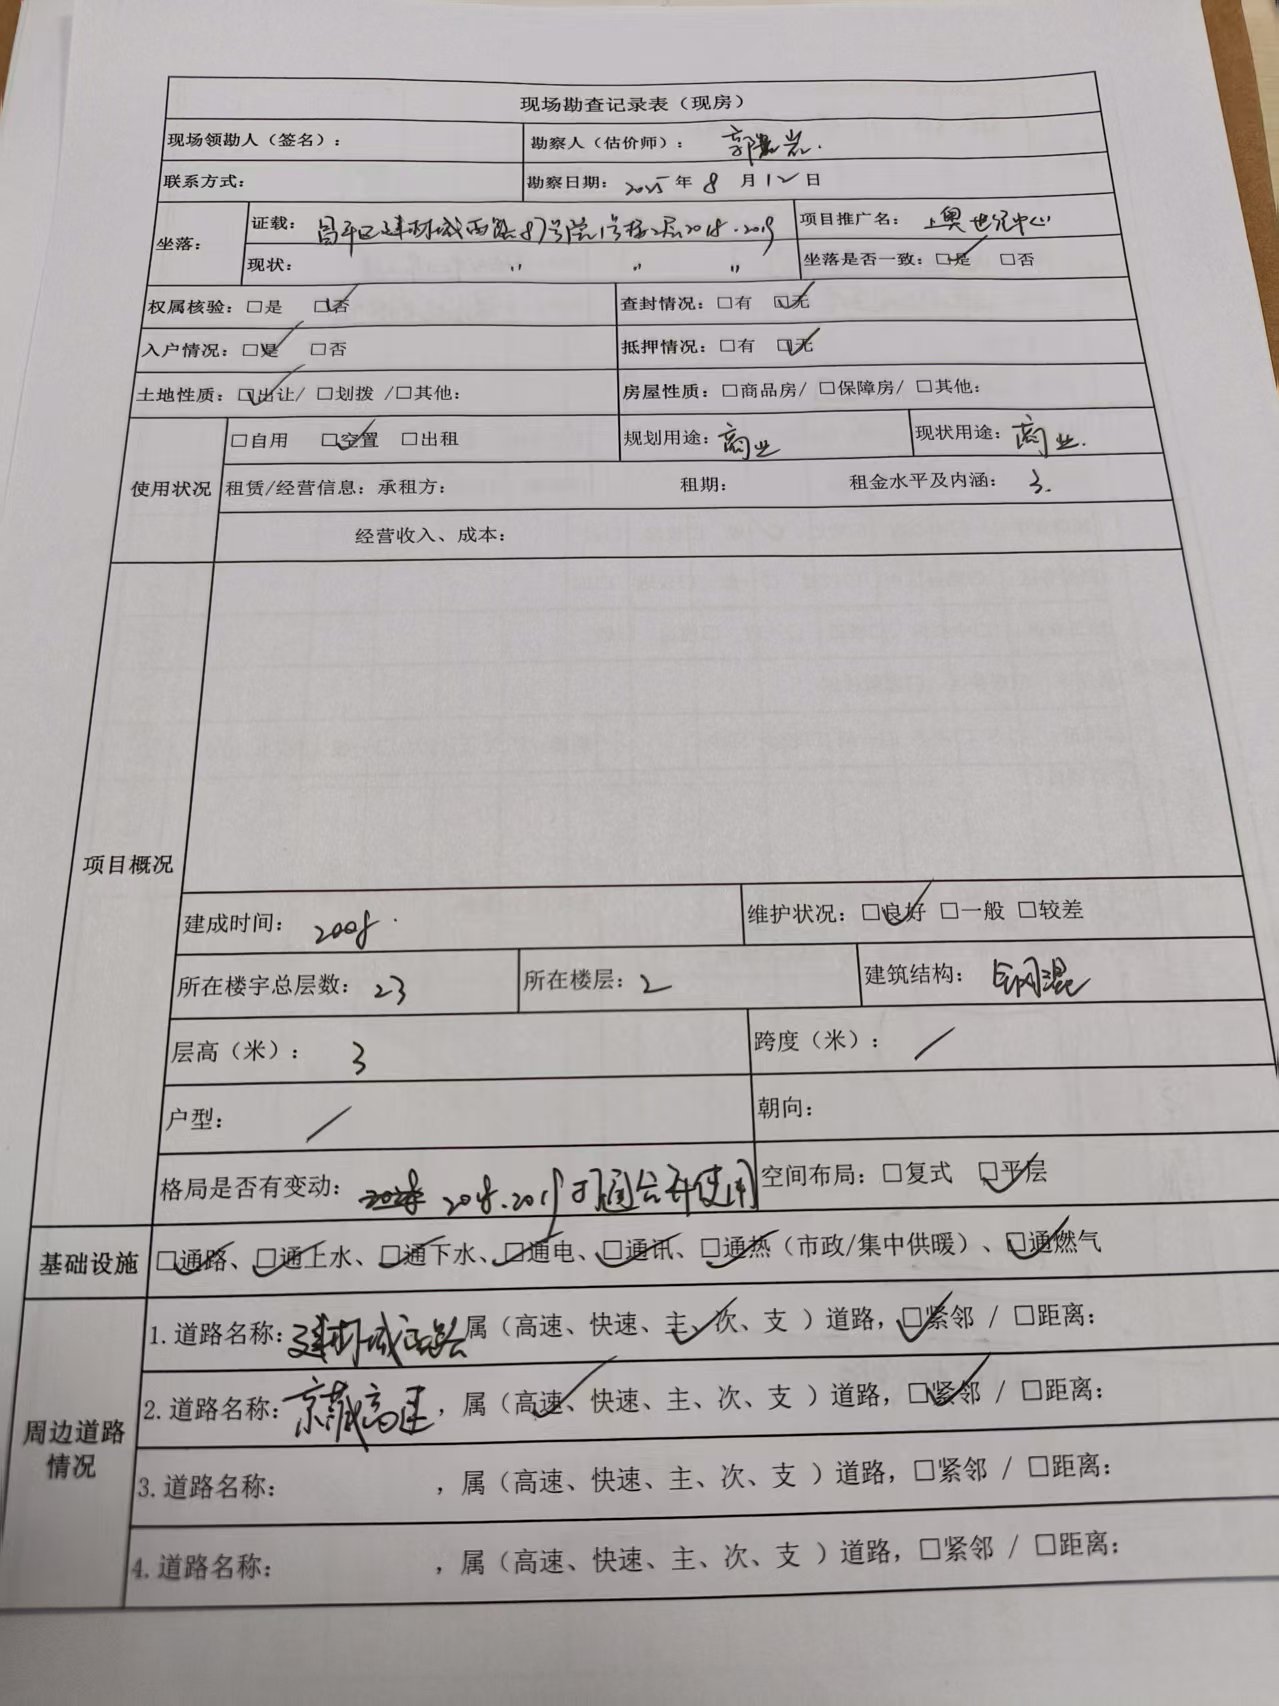 现场勘查记录表（现房）
现场领勘人（签名）： 勘察人（估价师）：
联系方式： 勘察日期：2025年8月12日
坐落： 证载：昌平区建材城西路87号院1号楼2层2018、2019 项目推广名：上奥世纪中心
现状：〃 〃 〃 坐落是否一致：☑是 □否
权属核验：□是 ☑否 查封情况：□有 ☑无
入户情况：☑是 □否 抵押情况：□有 ☑无
土地性质：☑出让/ □划拨 /□其他： 房屋性质：□商品房/ □保障房/ □其他：
使用状况 □自用 ☑空置 □出租 规划用途：商业 现状用途：商业.
租赁/经营信息：承租方： 租期： 租金水平及内涵：3.
经营收入、成本：
项目概况
建成时间：2008. 维护状况：☑良好 □一般 □较差
所在楼宇总层数：23 所在楼层：2 建筑结构：钢混
层高（米）：3 跨度（米）：/
户型：/ 朝向：
格局是否有变动：2018、2019打通合并使用 空间布局：□复式 ☑平层
基础设施 ☑通路、☑通上水、☑通下水、☑通电、☑通讯、☑通热（市政/集中供暖）、☑通燃气
周边道路情况
1.道路名称：建材城西路 属（高速、快速、主✓、次、支 ）道路，☑紧邻 / □距离：
2.道路名称：京藏高速，属（高速✓、快速、主、次、支 ）道路，☑紧邻 / □距离：
3.道路名称： ，属（高速、快速、主、次、支 ）道路，□紧邻 / □距离：
4.道路名称： ，属（高速、快速、主、次、支 ）道路，□紧邻 / □距离：